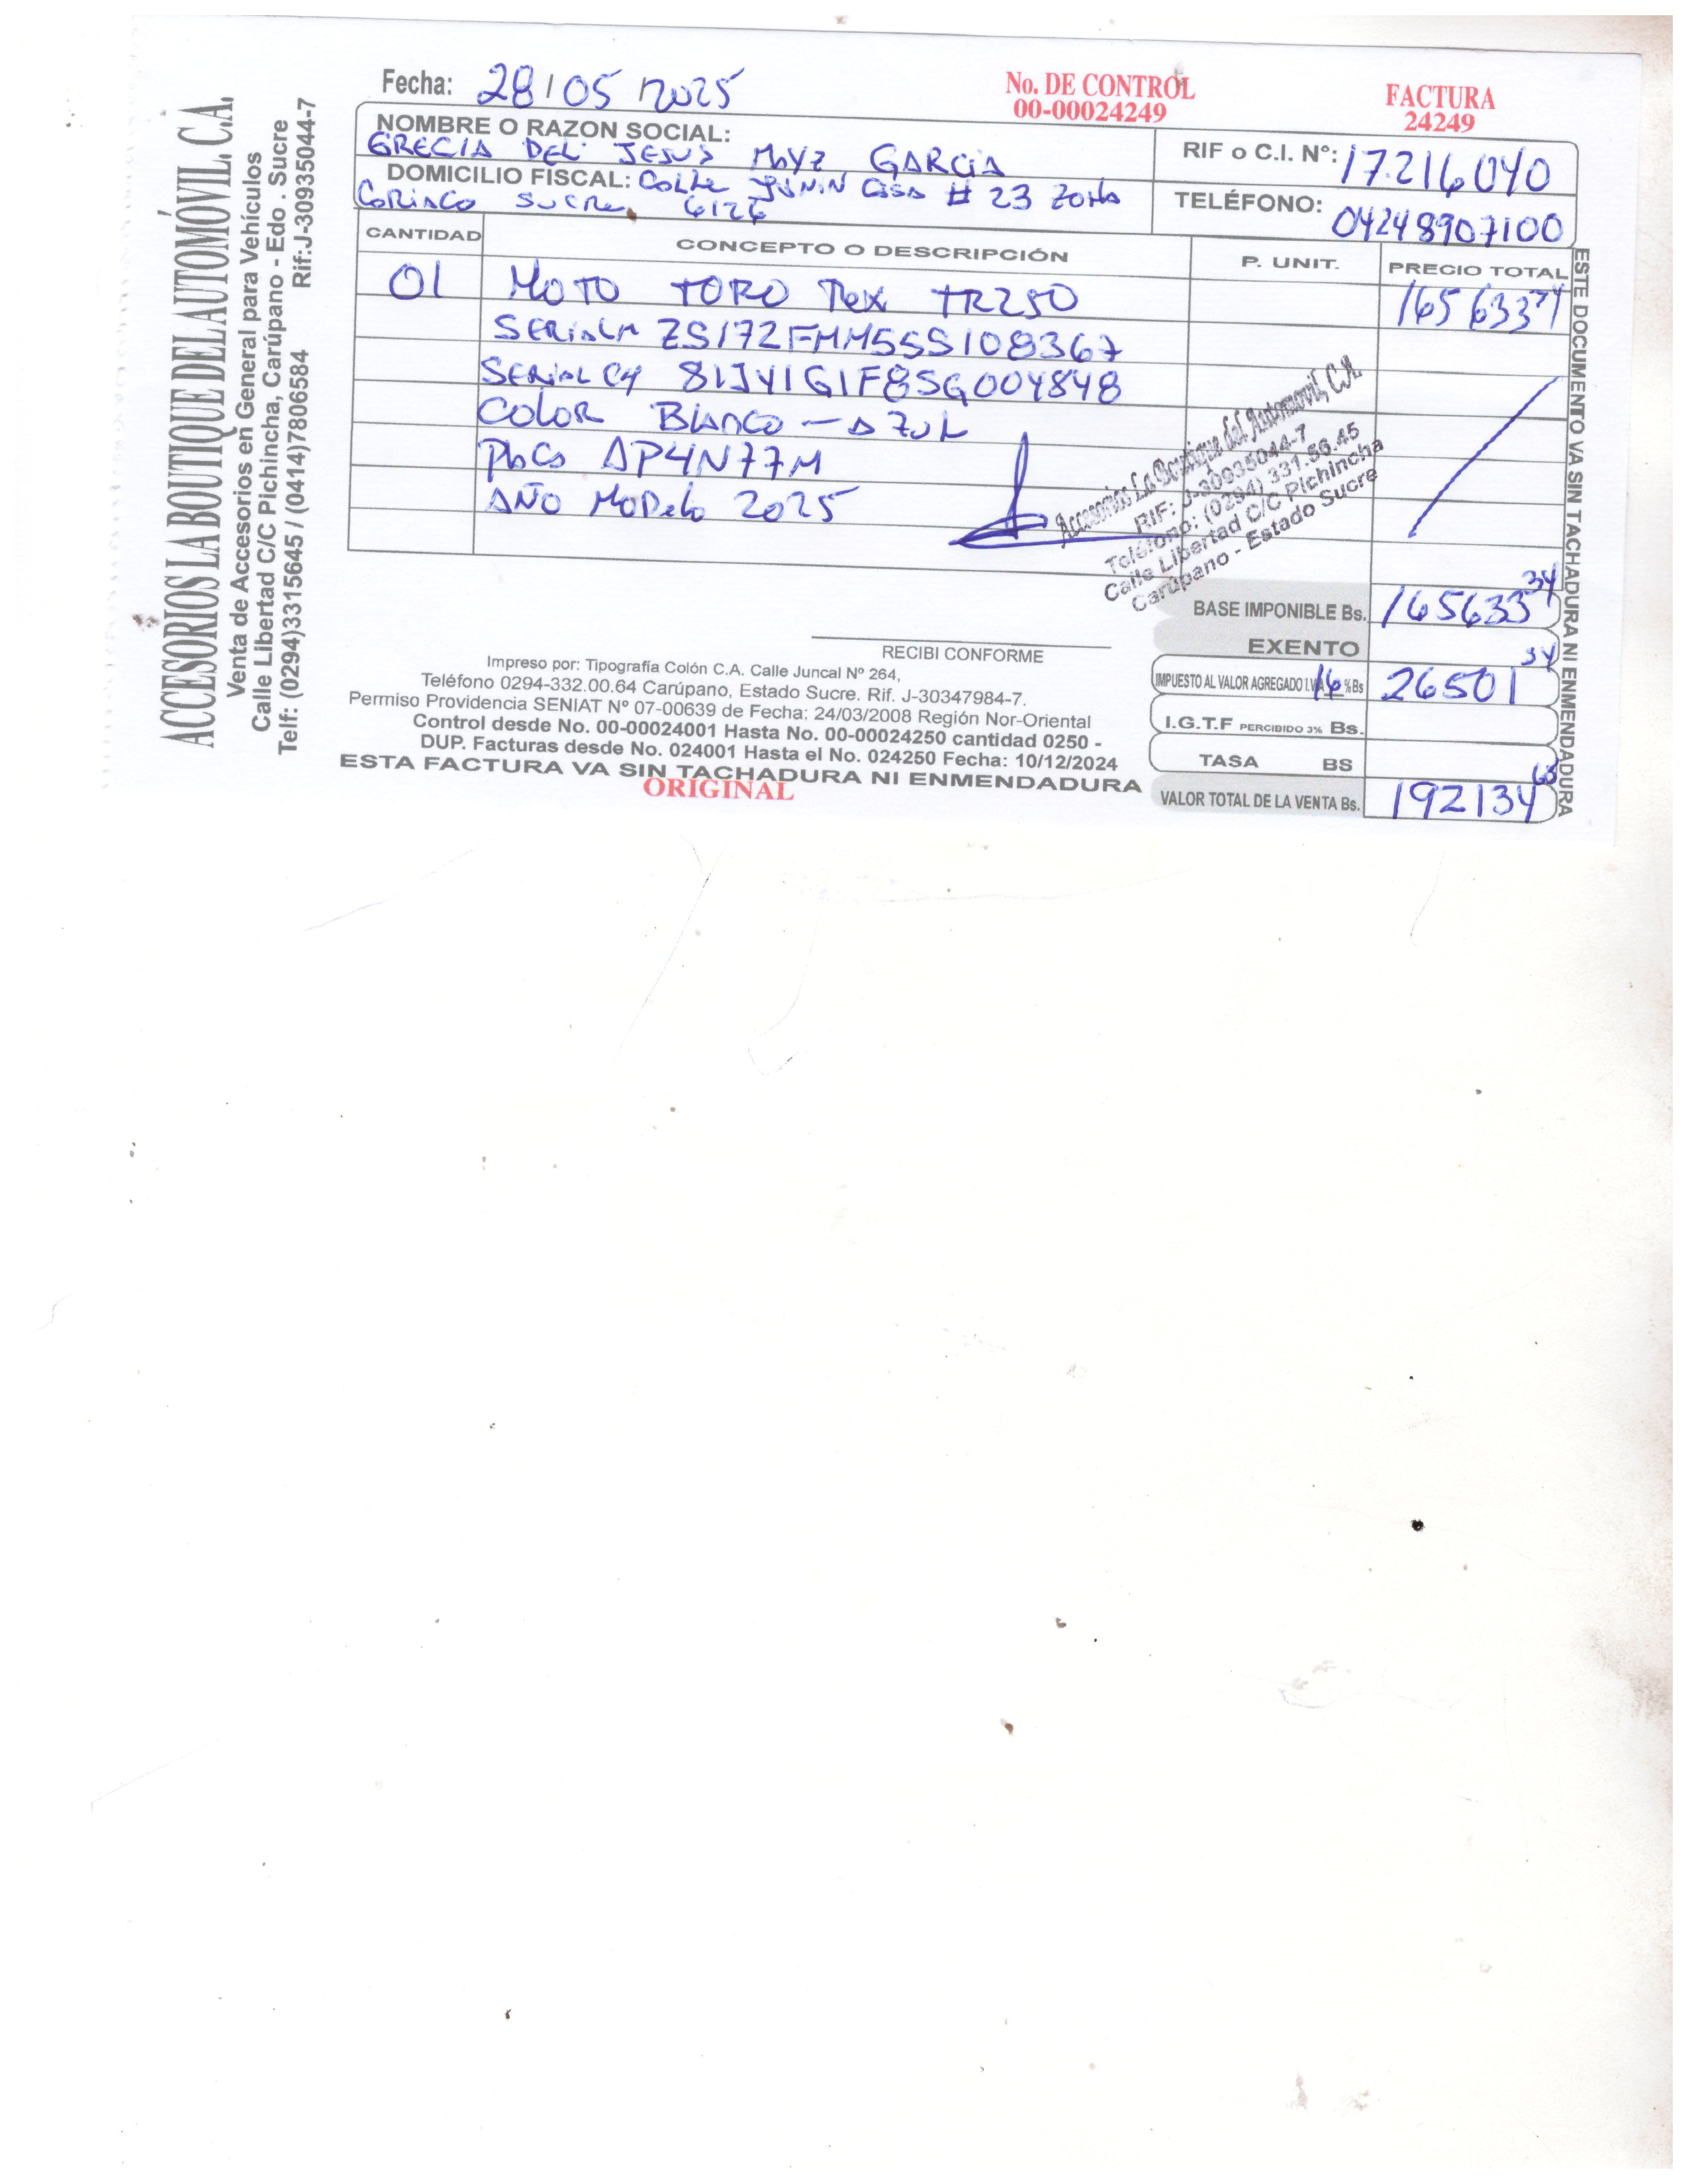 ACCESORIOS LA BOUTIQUE DEL AUTOMÓVIL C.A.
Venta de Accesorios en General para Vehículos
Calle Libertad C/C Pichincha, Carúpano - Edo . Sucre
Telf: (0294)3315645 / (0414)7806584 Rif:J-30935044-7
Fecha: 28/05/2025
No. DE CONTROL
00-00024249
FACTURA
24249
NOMBRE O RAZON SOCIAL:
GRECIA DEL JESUS MAYZ GARCIA
RIF o C.I. N°: 17.216040
DOMICILIO FISCAL: Calle JUNIN Casa # 23 Zona
Cariaco Sucre 6126
TELÉFONO: 04248907100
CANTIDAD CONCEPTO O DESCRIPCIÓN P. UNIT. PRECIO TOTAL
01 MOTO TORO Rex TR250 165633 34
SERIAL M ZS172FMM5SS108367
SERIAL CH 81JY1G1F8SG004848
COLOR Blanco - AZUL
PLACA AP4N77M
AÑO MODELO 2025
Accesorios La Boutique del Automovil, C.A.
RIF: J-30935044-7
Teléfono: (0294) 331.56.45
Calle Libertad C/C Pichincha
Carúpano - Estado Sucre
BASE IMPONIBLE Bs. 165633 34
EXENTO
IMPUESTO AL VALOR AGREGADO I.V.A 16 % Bs 26501 34
I.G.T.F PERCIBIDO 3% Bs.
TASA BS
VALOR TOTAL DE LA VENTA Bs. 192134 68
RECIBI CONFORME
Impreso por: Tipografía Colón C.A. Calle Juncal Nº 264,
Teléfono 0294-332.00.64 Carúpano, Estado Sucre. Rif. J-30347984-7.
Permiso Providencia SENIAT Nº 07-00639 de Fecha: 24/03/2008 Región Nor-Oriental
Control desde No. 00-00024001 Hasta No. 00-00024250 cantidad 0250 -
DUP. Facturas desde No. 024001 Hasta el No. 024250 Fecha: 10/12/2024
ESTA FACTURA VA SIN TACHADURA NI ENMENDADURA
ORIGINAL
ESTE DOCUMENTO VA SIN TACHADURA NI ENMENDADURA